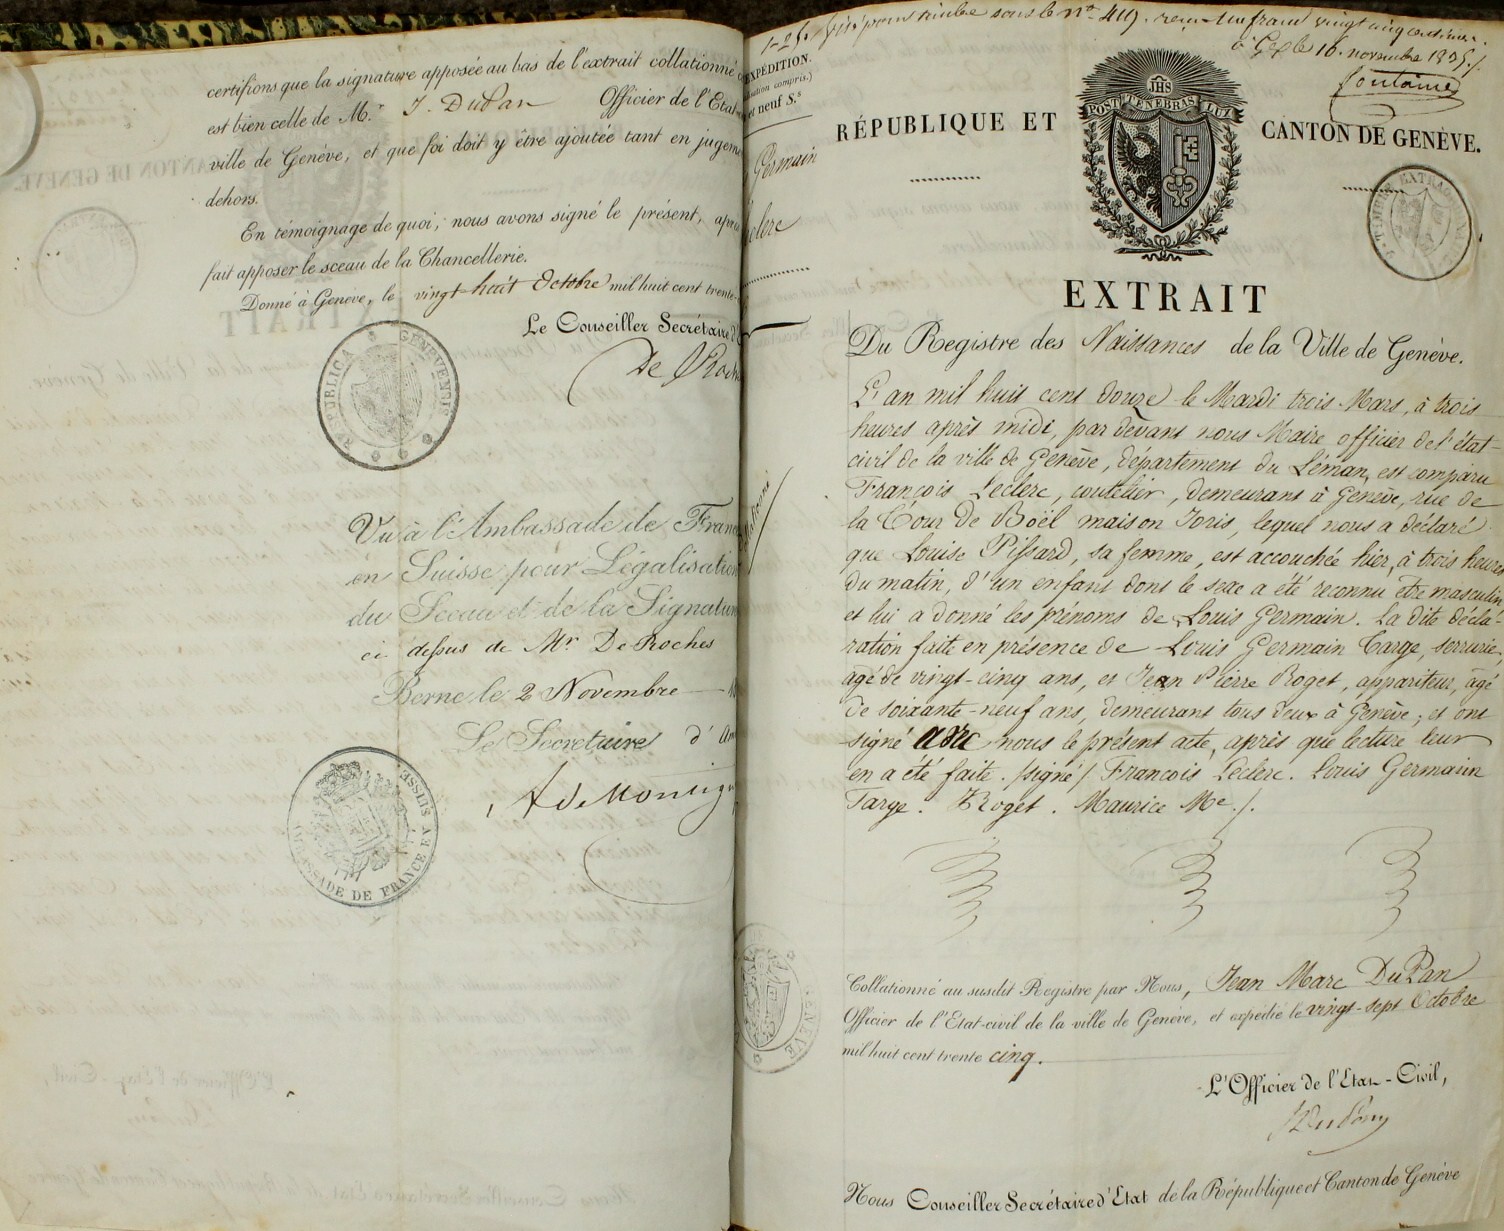 certifions que la signature apposée au bas de l'extrait collationné
est bien celle de M.r J. DuPan Officier de l'Etat
ville de Genève, et que foi doit y être ajoutée tant en jugeme
dehors.
En témoignage de quoi, nous avons signé le présent, après
fait apposer le sceau de la Chancellerie.
Donné à Genève, le vingt-huit Octobre mil huit cent trente-
Le Conseiller Secrétaire d'
De Roch
RESPUBLICA GENEVENSIS
Vu à l'Ambassade de Fran
en Suisse pour Légalisation
du Sceau et de la Signature
ci dessus de Mr De Roches
Berne le 2 Novembre
Le Secretaire d'am
A de Montign
AMBASSADE DE FRANCE EN SUISSE.
1-25. Visé pour timbre sous le n.o 419. reçu un franc vingt cinq centimes.
à Gex le 16. novembre 1835./.
Fontaine
EXPÉDITION.
compris.)
neuf S.s
Germain
Leclerc
POST TENEBRAS LUX
JHS
RÉPUBLIQUE ET CANTON DE GENÈVE.
EXTRAIT
Du Registre des Naissances de la Ville de Genève.
L'an mil huit cent douze le Mardi trois Mars, à trois
heures après midi, par devant nous Maire officier de l'état-
civil de la ville de Genève, département du Léman, est comparu
François Leclerc, coutelier, demeurant à Genève, rue de
la Tour de Boël maison Joris, lequel nous a déclaré
que Louise Pissard, sa femme, est accouchée hier, à trois heures
du matin, d'un enfant dont le sexe a été reconnu être masculin
et lui a donné les prénoms de Louis Germain. La dite décla-
ration faite en présence de Louis Germain Targe, serrurier,
agé de vingt-cinq ans, et Jean Pierre Roget, appariteur, agé
de soixante-neuf ans, demeurant tous deux à Genève; et ont
signé avec nous le présent acte, après que lecture leur
en a été faite. /signé/ François Leclerc. Louis Germain
Targe. Roget. Maurice Me./.
GENEVE
Collationné au susdit Registre par Nous, Jean Marc DuPan
Officier de l'Etat-civil de la ville de Genève, et expédié le vingt-sept Octobre
mil huit cent trente cinq.
L'Officier de l'Etat-Civil,
DuPan
Nous Conseiller Secrétaire d'Etat de la République et Canton de Genève